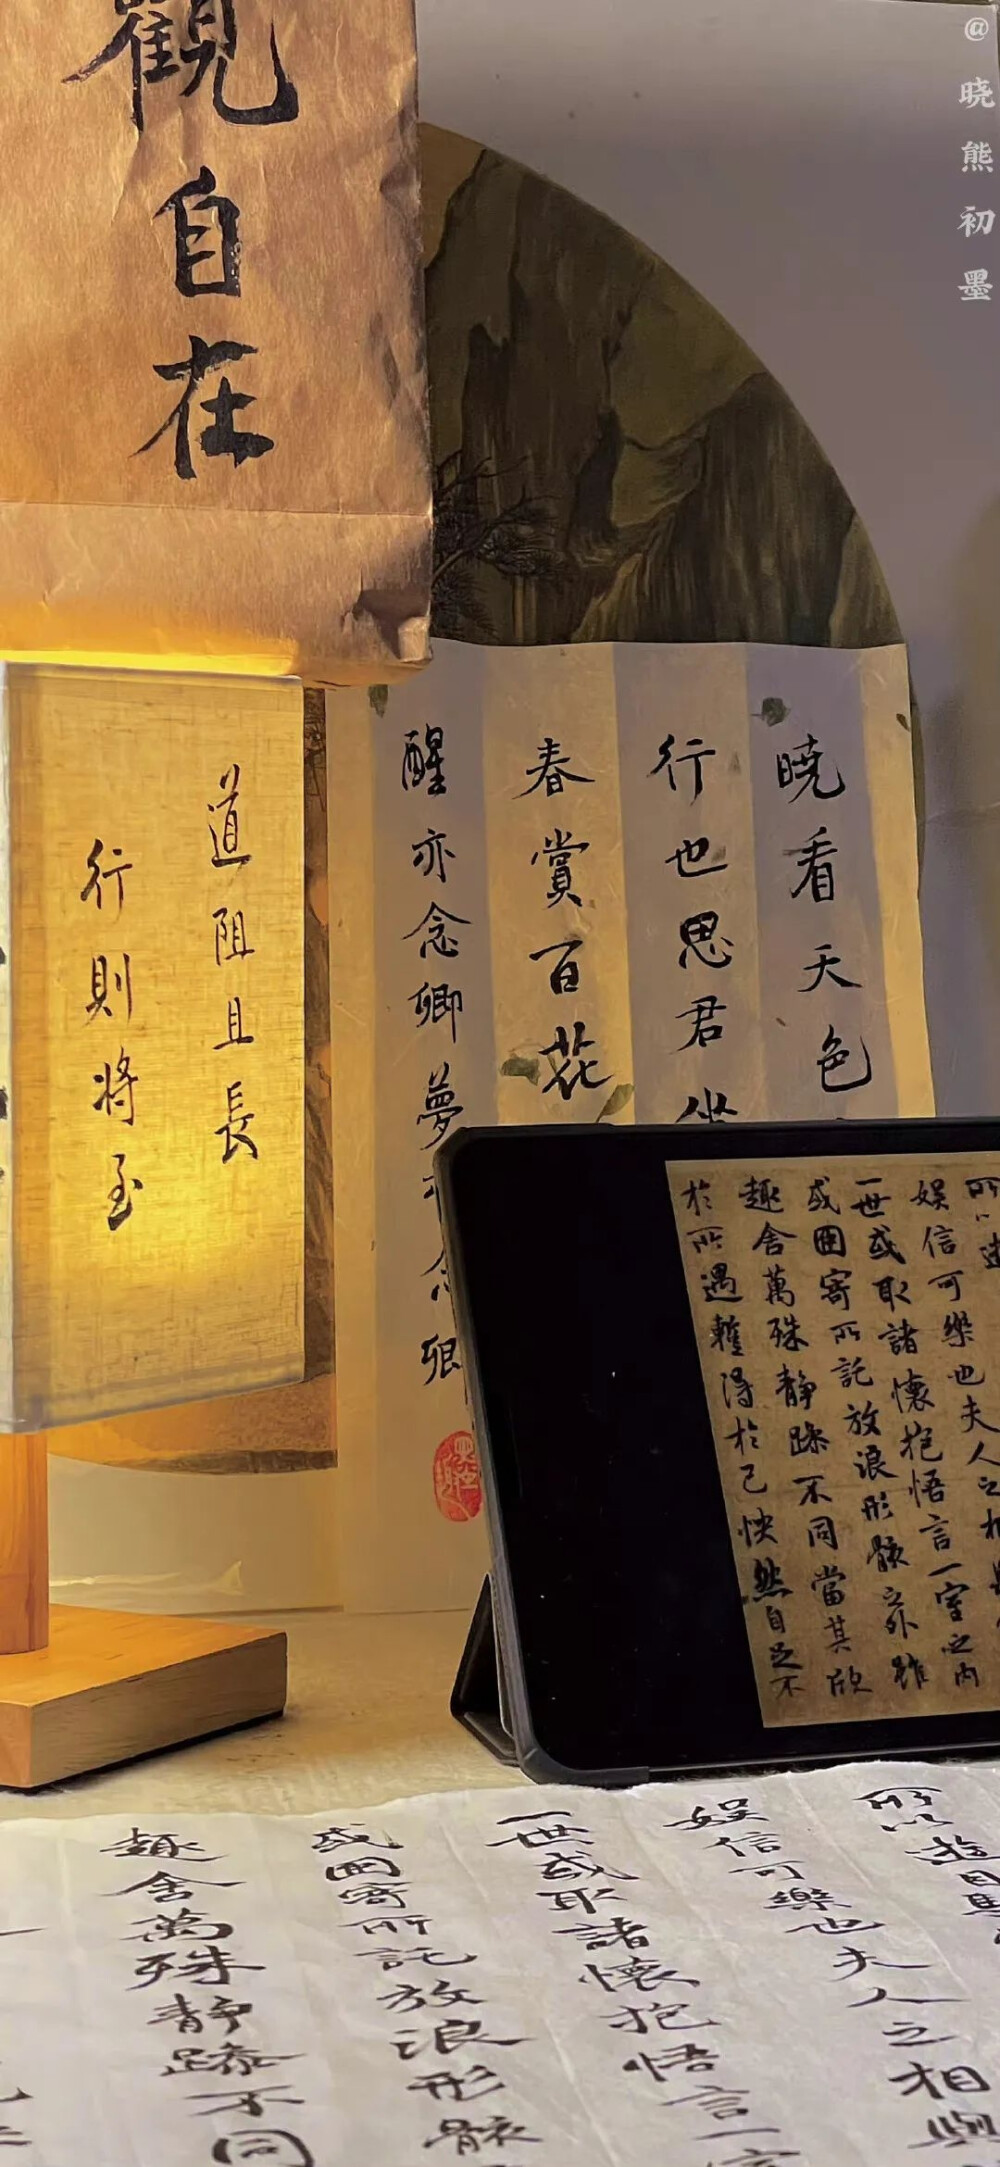 @晓熊初墨
觀自在
道阻且長
行則將至
晓看天色
行也思君坐
春賞百花
醒亦念卿夢
念卿
所以遊
娱信可樂也夫人之相與
一世或取諸懷抱悟言一室之内
或因寄所託放浪形骸之外雖
趣舍萬殊静躁不同當其欣
於所遇暫得於己怏然自足不
所以遊目騁
娱信可樂也夫人之相與
一世或取諸懷抱悟言一室
或因寄所託放浪形骸
趣舍萬殊静躁不同